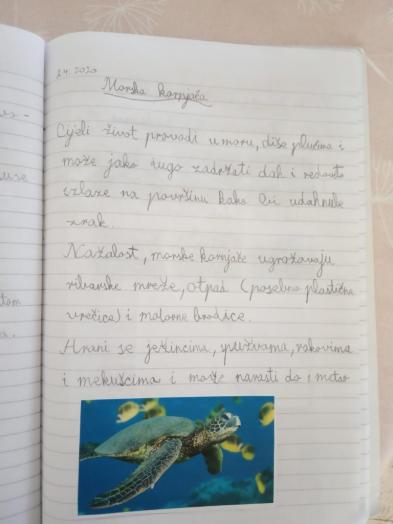 2.4.2020
Morska kornjača
Cijeli život provodi u moru, diše plućima i
može jako dugo zadržati dah i redovito
izlaze na površinu kako bi udahnule
zrak.
Nažalost, morske kornjače ugrožavaju
ribarske mreže, otpad (posebno plastična
vrećica) i motorne brodice.
Hrani se ježincima, spužvama, rakovima
i mekušcima i može narasti do 1 metar